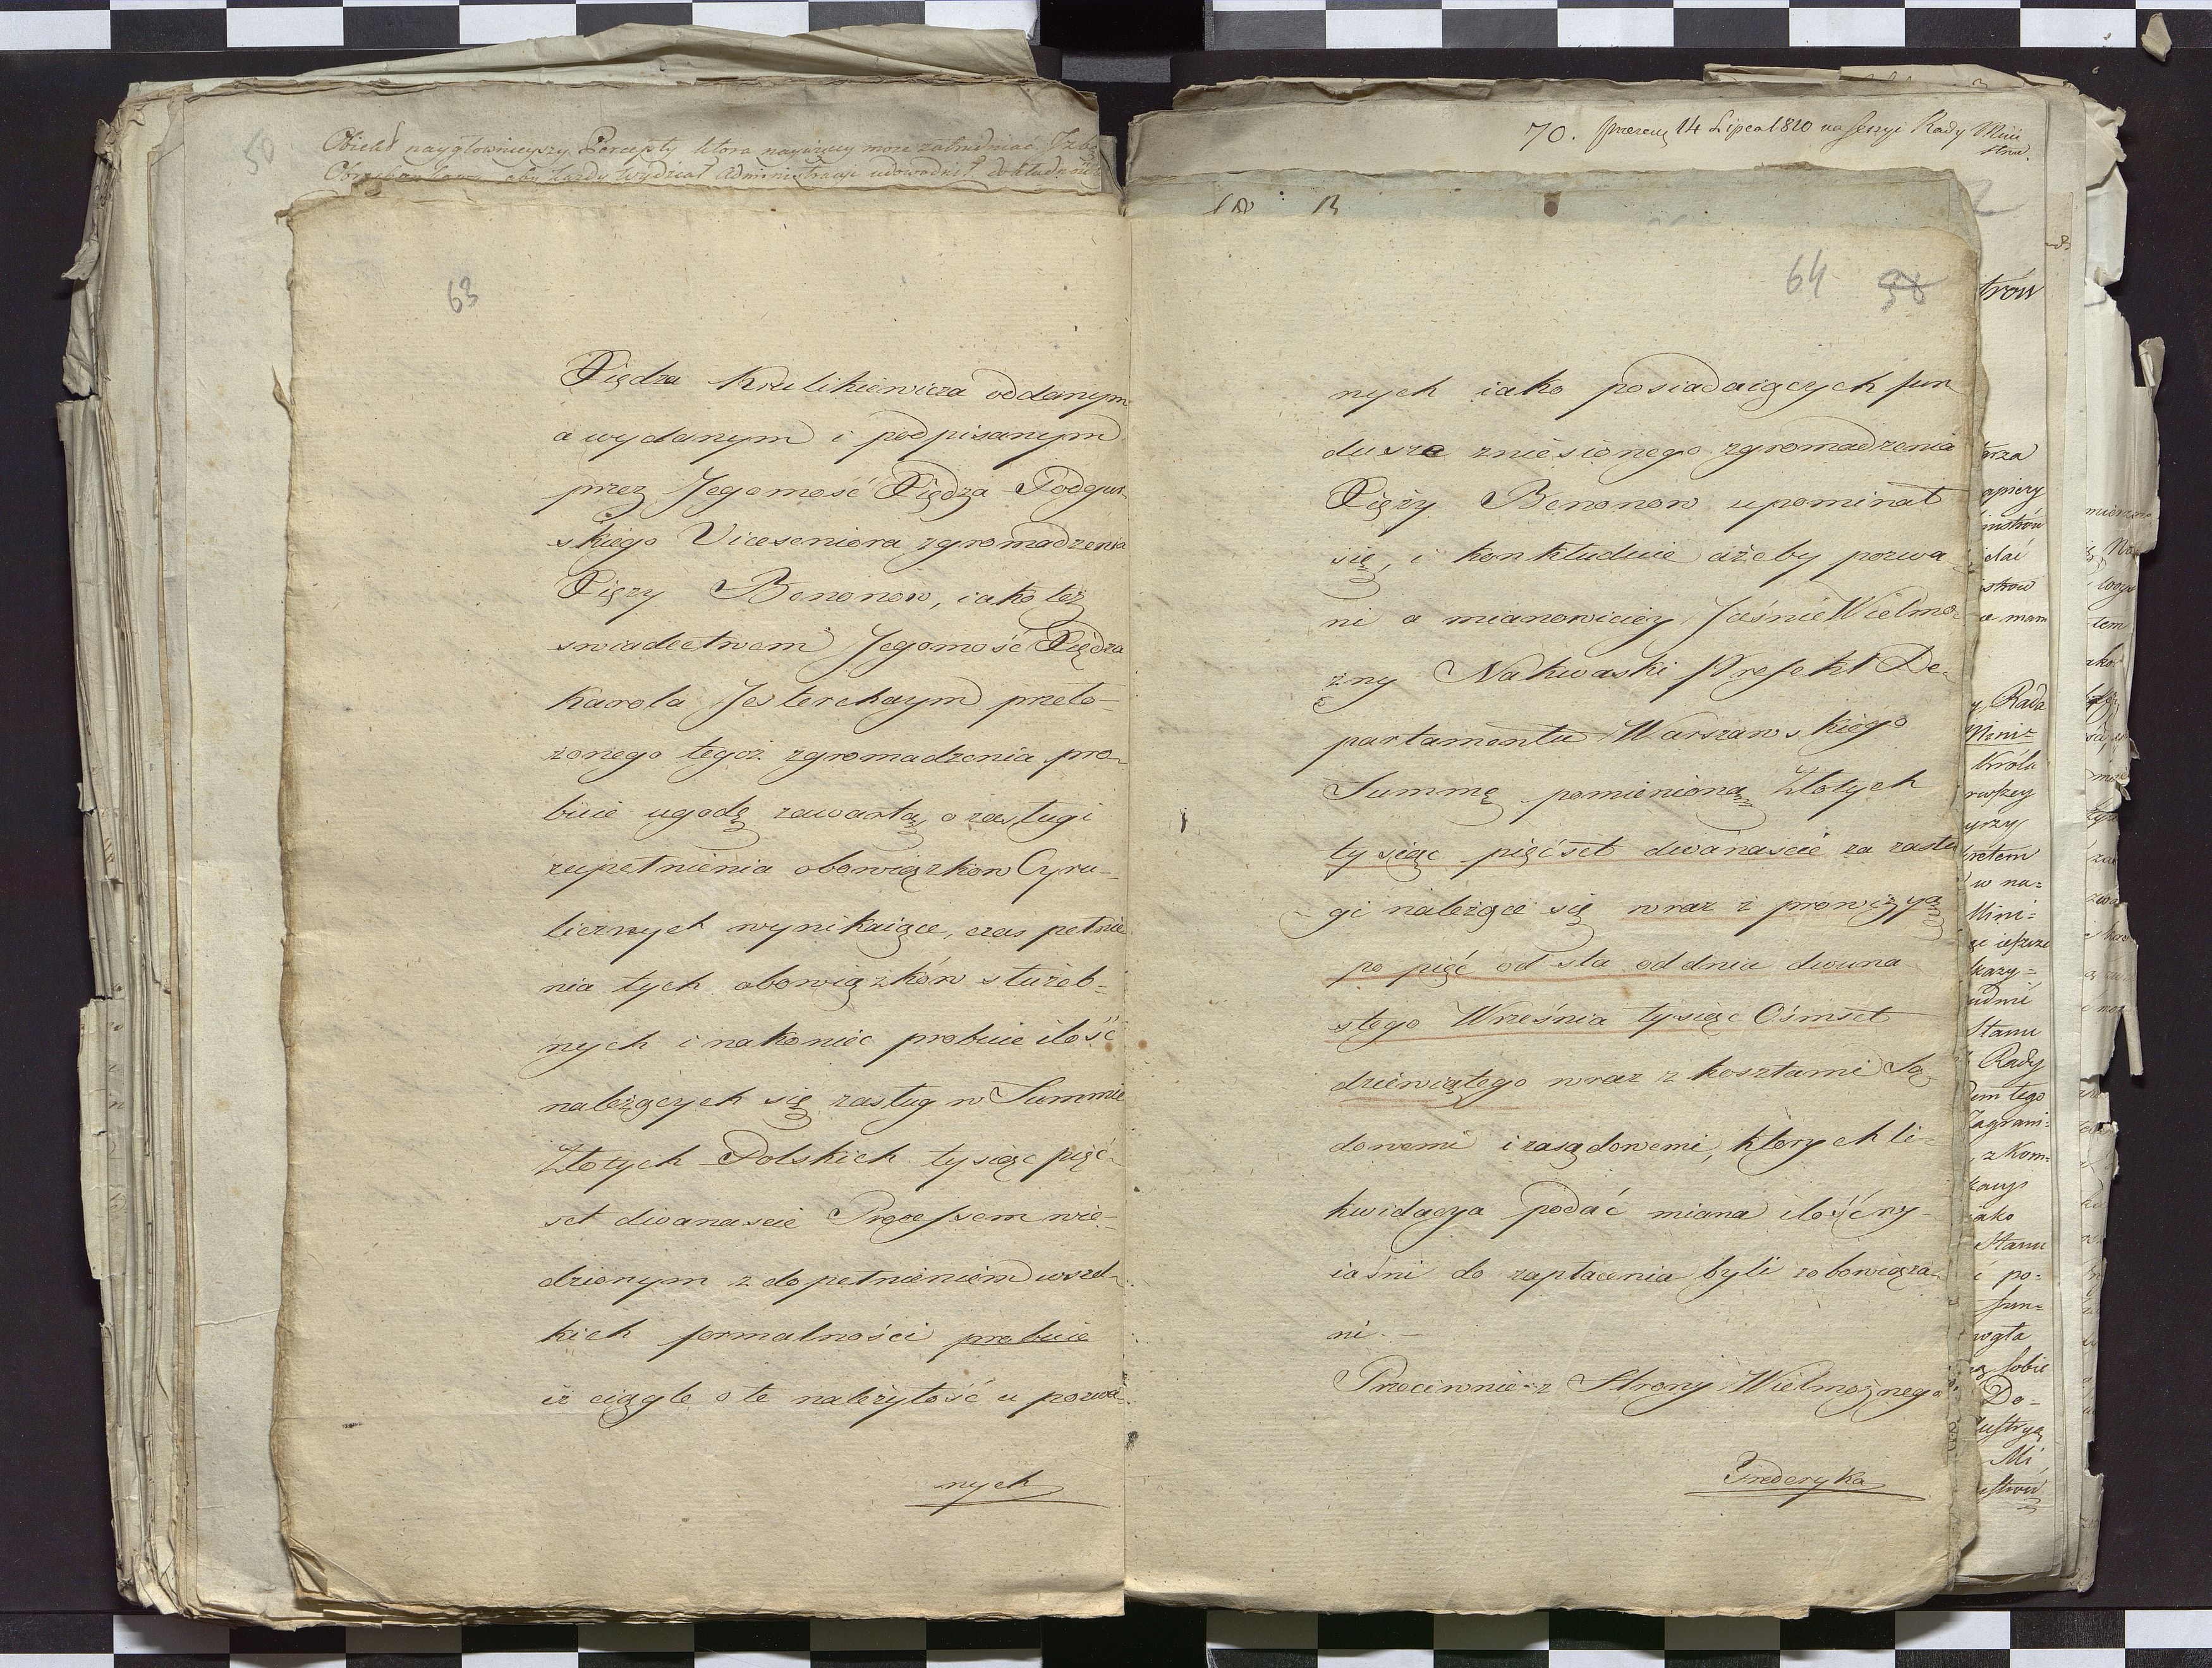 50
Obiekt naygłownieyszy Percepty ktora naywięcy może zatrudniać Izbę
aby każdy Wydział Administracyi udowodnił dokładnie
63
Xiędza Krulikiewicza oddanym
a wydanym i podpisanym
przez Jegomość Xiędza Podgur-
skiego Viceseniora zgromadzenia
Xięży Benonow, iako też
swiadectwem Jegomość Xiędza
Karola Jesterchaym przeło-
żonego tegoż zgromadzenia pro-
buie ugodę zawartą, o zasługi
zupełnienia obowiązkow Cyru-
licznych wynikaiące, czas pełnie
nia tych obowiązków służeb-
nych i nakoniec probuie ilość
należących się zasług w Summie
Złotych Polskich tysiąc pięć-
set dwanascie Processem wie-
dzionym z dopełnieniem wszel-
kich formalności probuie
iż ciągle o te należytość u pozwa-
nych
70. 14 Lipca 1810 na Sessyi Rady Mini
strów.
64 58
nych iako posiadaiących fun-
dusze zniesionego zgromadzenia
Xięży Benonow upominał
się, i konkluduie ażeby pozwa-
ni a mianowiciey JaśnieWielmo-
żny Nakwaski Prefekt De-
partamentu Warszawskiego
Summę pomienioną Złotych
tysiąc pięćset dwanascie za zasłu
gi należące się wraz z prowizyą
po pięć od sta od dnia dwuna
stego Września tysiąc Ośmset
dziewiątego wraz z kosztami Są
dowemi i zasądowemi, ktorych li-
kwidacya podać miana ilość wy-
iaśni do zapłacenia byli zobowiąza-
ni
Przeciwnie z Strony Wielmożnego
Fryderyka
trów
arza
apiery
inistrów
a mam
y, Rada
Mini=
Króla
yrzy
w na=
Mini=
kazy=
Stanu
Rady
tego
Zagrani=
z Kom=
iako
Stanu
i po=
fun=
sobie
Do=
Mi